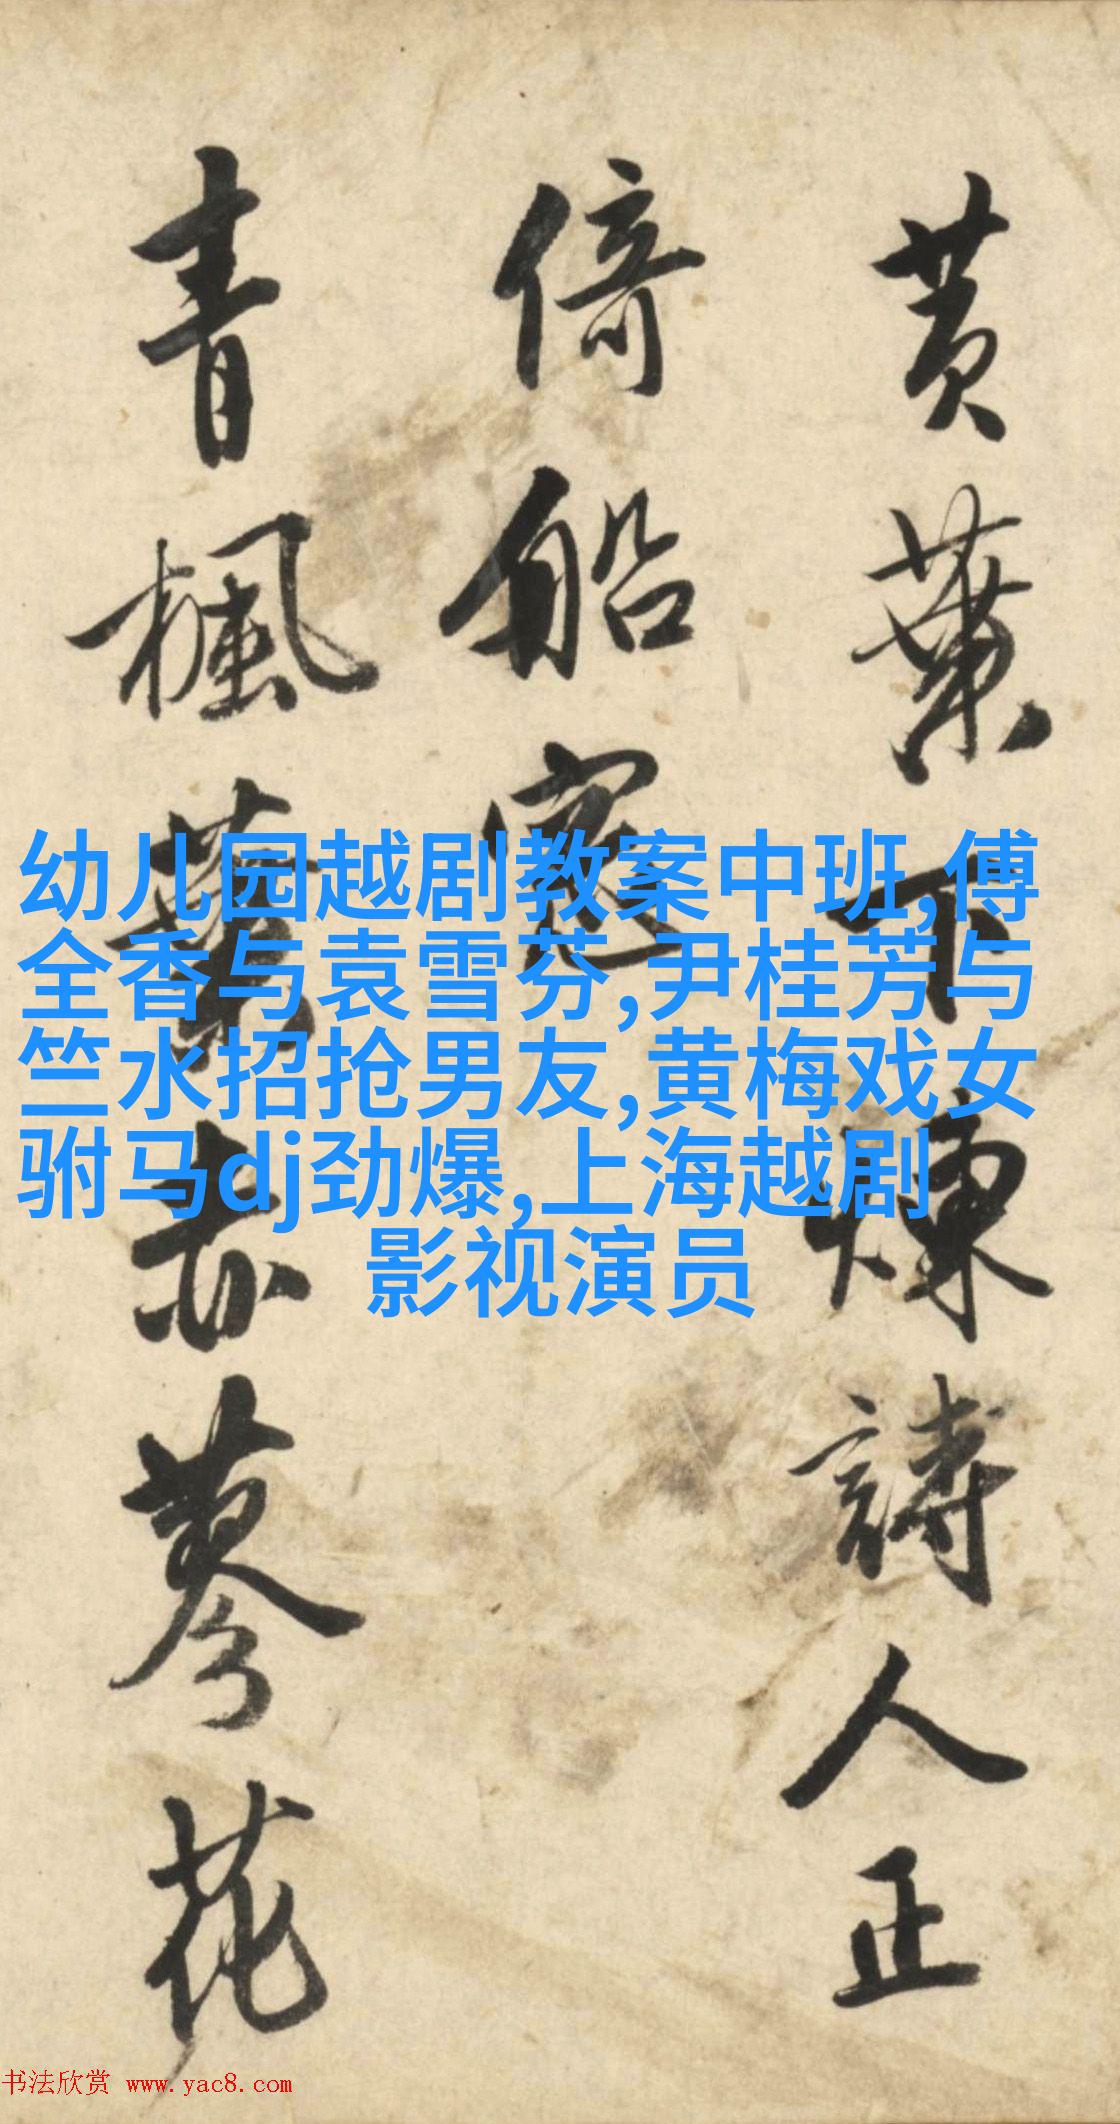 黄葉下煉詩人正
倚船窓
青楓葉赤蓼花
幼儿园越剧教案中班,傅
全香与袁雪芬,尹桂芳与
竺水招抢男友,黄梅戏女
驸马dj劲爆,上海越剧
影视演员
书法欣赏 www.yac8.com